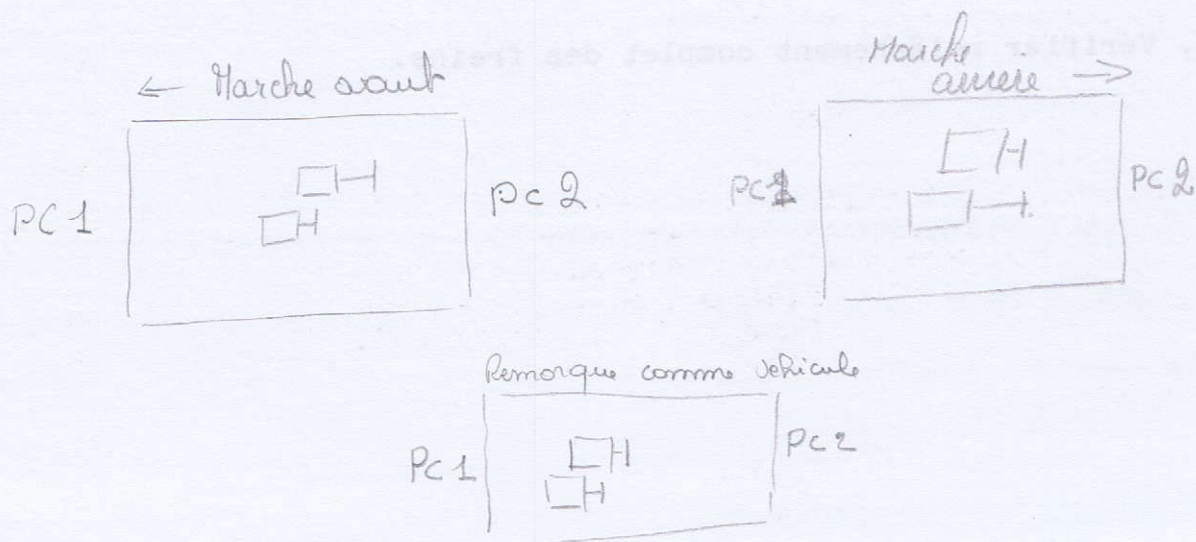 . Vérifier complet des freins.
← Marche avant
Marche
arrière →
PC 1
PC 2
PC1
PC 2
Remorque comme vehicule
PC 1
PC 2